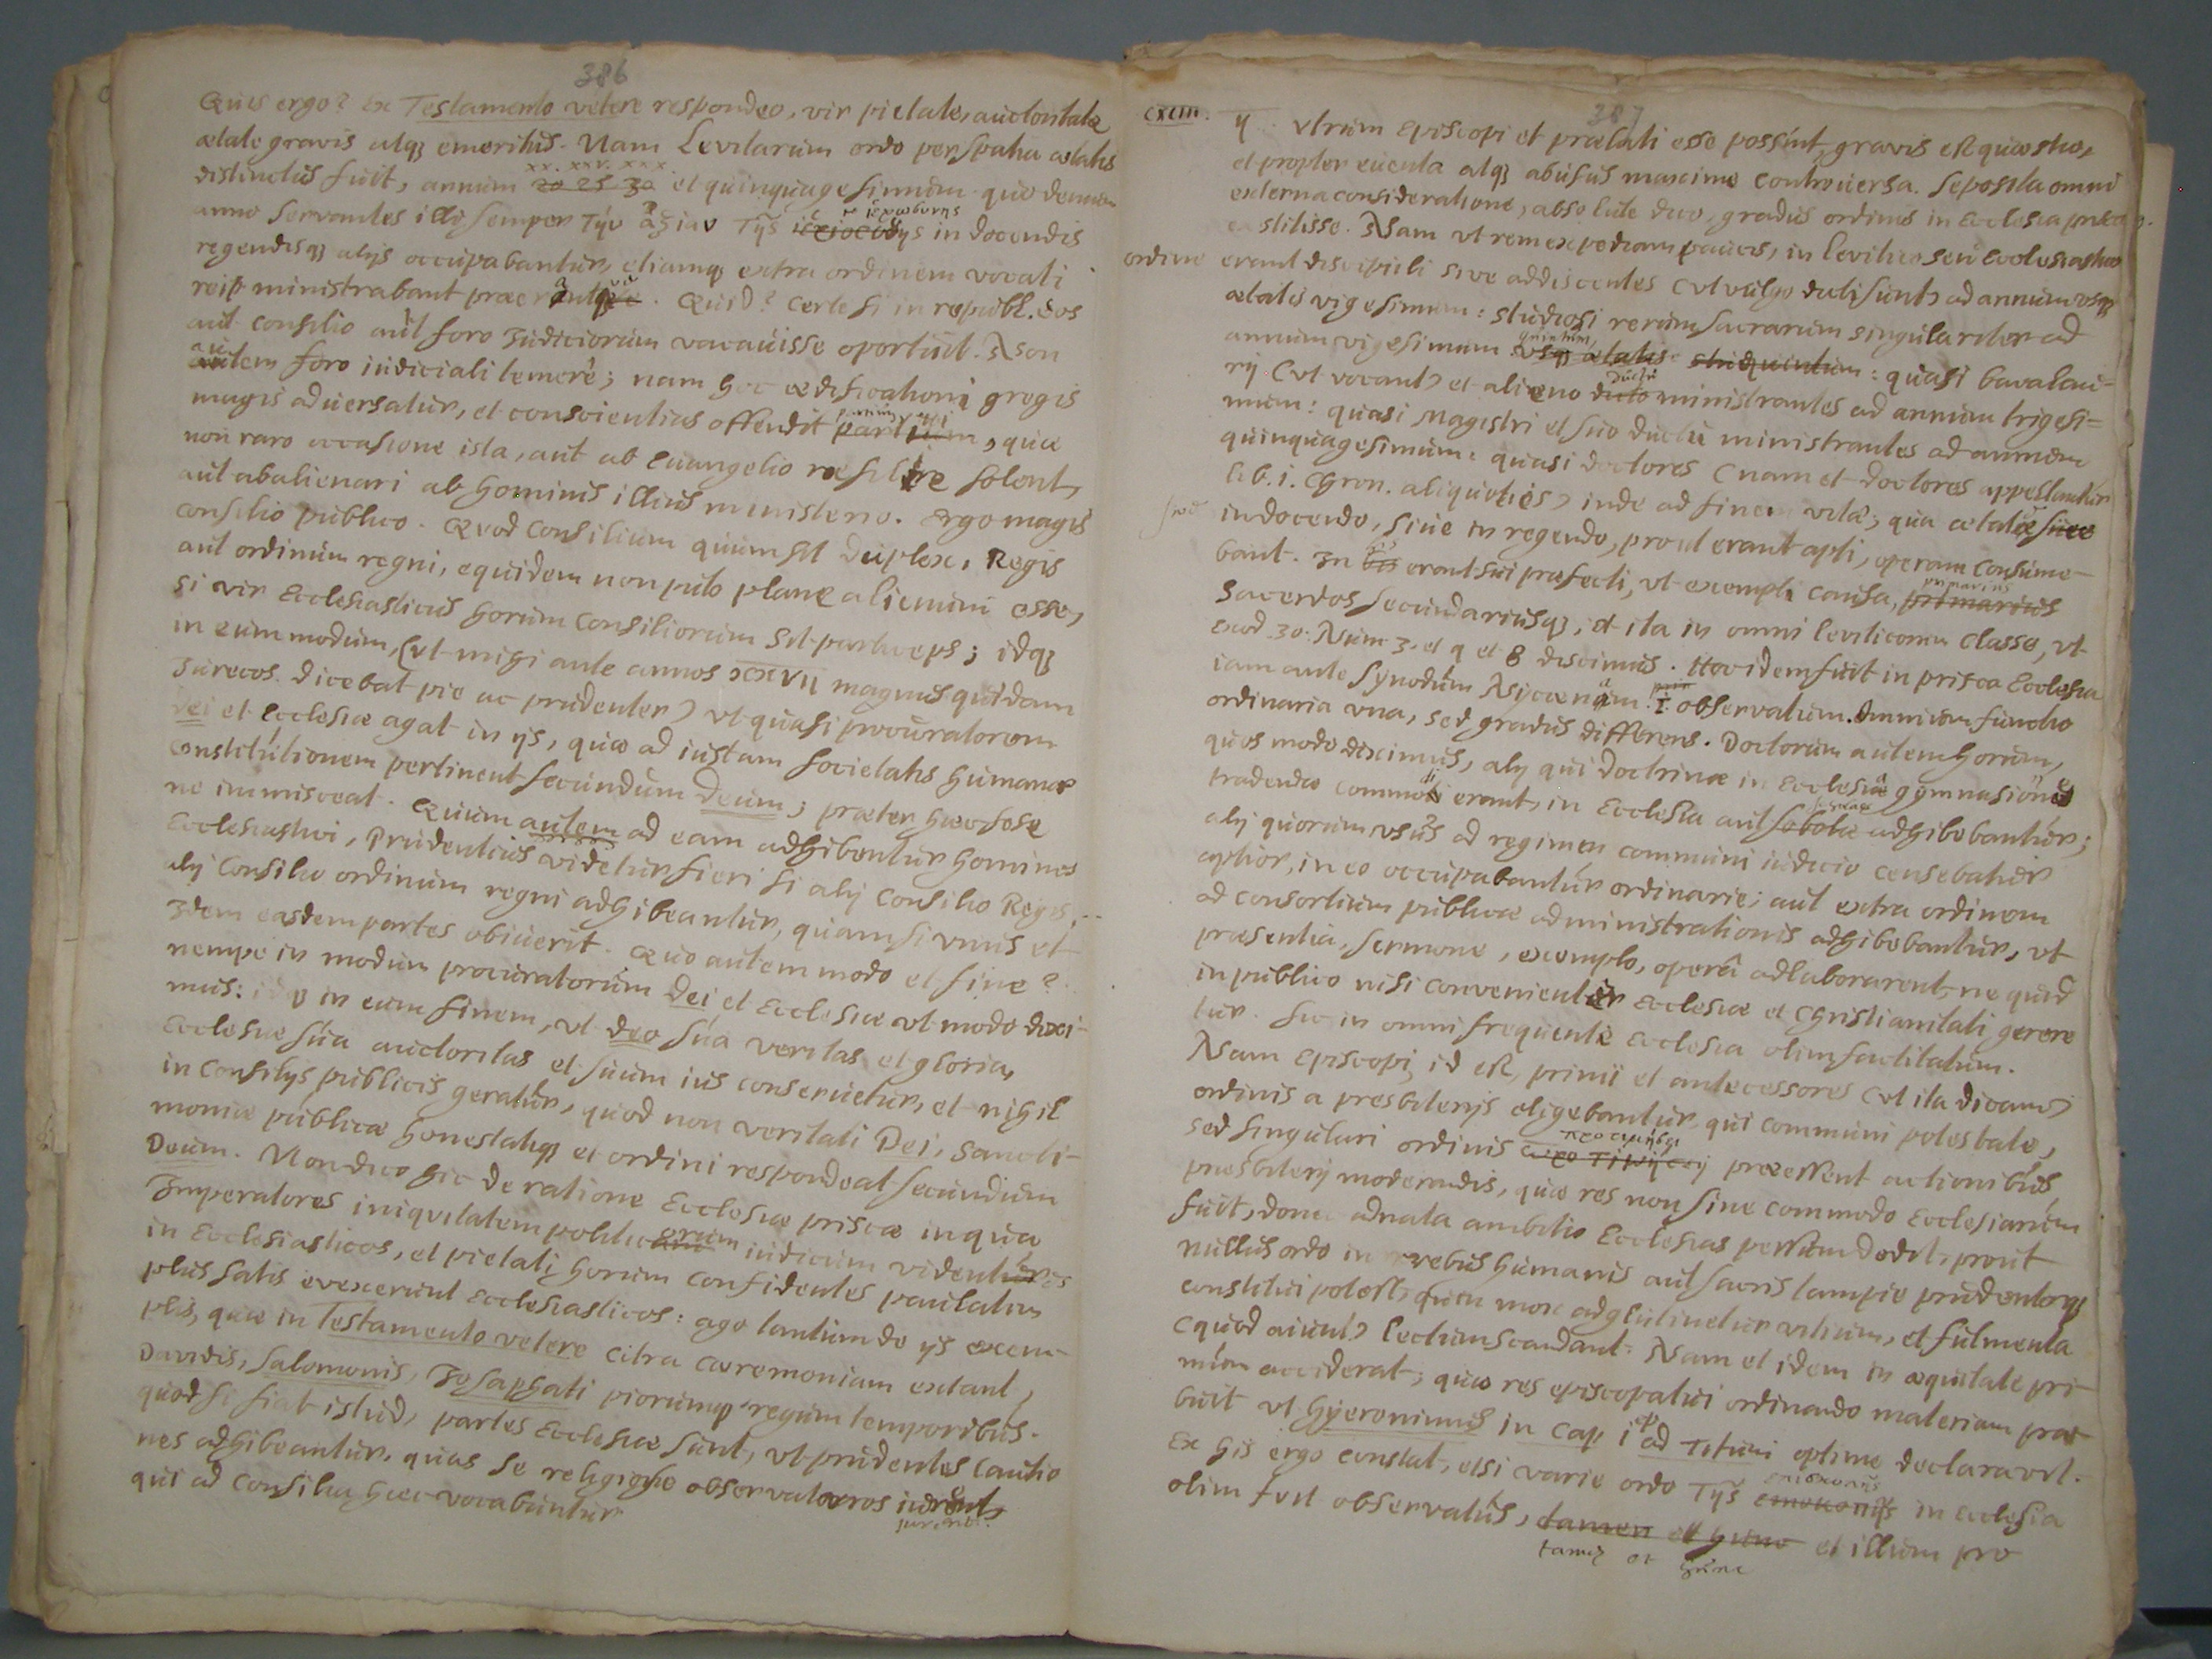 386
Quis ergo? Ex Testamento vetere respondeo, vir pietate, auctoritate
ætate gravis atq emeritus. Nam Levitarum ordo per spatia ætatis
xx. xxv. xxx
distinctus fuit, annum 20 25 30 et quinquagesimum quo demum
anno servantes illi semper τὴν ἀξίαν τῆς in docendis
regendisq alijs occupabantur, etiamq extra ordinem vocati
reip ministrabant præerantque. Quid? Certe si in republ. eos
aut consilio aut foro Judiciorum vacavisse oportuit. Non
autem foro iudiciali temerè; nam hoc ædificationi gregis
magis adversatur, et conscientias offendit partium, quæ
non raro occasione ista, aut ab Evangelio resilire solent,
aut abalienari ab hominis illius ministerio. Ergo magis
consilio publico. Quod consilium quum sit duplex, Regis
aut ordinum regni, equidem non puto plane alienum esse,
si vir Ecclesiasticus horum consiliorum sit particeps; idq
in eum modum, (vt mihi ante annos xxvij magnus quidam
Jurecos. dicebat pie ac prudenter) vt quasi procuratorem
Dei et Ecclesiæ agat in ijs, quæ ad iustam societatis humanæ
constitutionem pertinent secundum Deum; præter hæc sese
ne immisceat. Quum autem ad eam adhibentur homines
Ecclesiastici, prudentius videtur fieri si alij consilio Regis,
alij consilio ordinum regni adhibeantur, quam si vnus et
Idem easdem partes obiverit. Quo autem modo et fine?
nempe in modum procuratorum Dei et Ecclesiæ vt modo dixi-
mus: idq in eum finem, vt Deo sua veritas et gloria,
Ecclesiæ sua auctoritas et suum ius conservetur, et nihil
in consilijs publicis geratur, quod non veritati Dei, sancti-
moniæ publicæ honestatiq et ordini respondeat secundum
Deum. Non dico hic de ratione Ecclesiæ priscæ in qua
Imperatores iniquitatem politicorum iudicum videntes
in Ecclesiasticos, et pietati horum confidentes paulatim
plus satis evexerunt Ecclesiasticos: ago tantum de ijs exem-
plis, quæ in Testamento vetere citra cæremoniam extant,
Davidis, Salomonis, Josaphati piorumq regum temporibus.
quod si fiat istud, partes Ecclesiæ sunt, vt prudentes cautio
nes adhibeantur, quas se religiose observaturos iurent,
qui ad consilia hæc vocabuntur
387
cxcm.
ij Vtrum Episcopi et prælati esse possint, gravis est quæstio,
et propter eventa atq abusus maxime controversa. Seposita omni
externa consideratione, absolute dico, gradus ordinis in Ecclesia
exstitisse. Nam vt rem expediam paucis, in Levitico seu Ecclesiastico
ordine erant discipuli sive addiscentes (vt vulgo dicti sunt) ad annum vsq
ætatis vigesimum: studiosi rerum sacrarum singulariter ad
annum vigesimum quintum: quasi bacalau-
rij (vt vocant) et alieno ductu ministrantes ad annum trigesi=
mum: quasi Magistri et suo ductu ministrantes ad annum
quinquagesimum: quasi doctores (nam et doctores appellantur
lib. 1. Chron. aliquoties) inde ad finem vitæ; qua ætate sive
in docendo, sive in regendo, prout erant apti, operam consume-
bant. In his erant sui præfecti, vt exempli causa, primarius
Sacerdos secundariusq, et ita in omni leviticorum classe, vt
Exod 30. Num 3. et 4 et 8 discimus. Hoc idem fuit in prisca Ecclesia
iam ante Synodum Nycænam I observatum. Omnium functio
ordinaria vna, sed gradus differens. Doctorum autem horum,
quos modo diximus, alij qui doctrinæ in Ecclesiæ gymnasio
tradendæ commodi erant, in Ecclesia aut schola adhibebantur;
alij quorum vsus ad regimen communi iudicio censebatur
aptior, in eo occupabantur ordinarie; aut extra ordinem
ad consortium publicæ administrationis adhibebantur, vt
præsentia, sermone, exemplo, opera adlaborarent, ne quid
in publico nisi convenienter Ecclesiæ et Christianitati gerere
tur. Sic in omni frequenti Ecclesia olim factitatum.
Nam Episcopi, id est, primi et antecessores (vt ita dicam)
ordinis a presbiterijs eligebantur, qui communi potestate,
sed singulari ordinis præessent actionibus
presbiterij moderandis, quæ res non sine commodo Ecclesiarum
fuit, donec adnata ambitio Ecclesias pessum dedit, prout
nullus ordo in rebus humanis aut sacris tam pie prudenterq
constitui potest, quin mox adglutinetur vitium, et fulmenta
(quod aiunt) lectum scandant. Nam et idem in æquitate pri-
mum acciderat; quæ res episcopatui ordinando materiam præ-
buit vt Hyeronimus in Cap 1 ad Titum optime declaravit.
Ex his ergo constat, etsi varie ordo τῆς ἐπισκοπῆς in Ecclesia
olim fuit observatus, tamen et hunc et illum pro